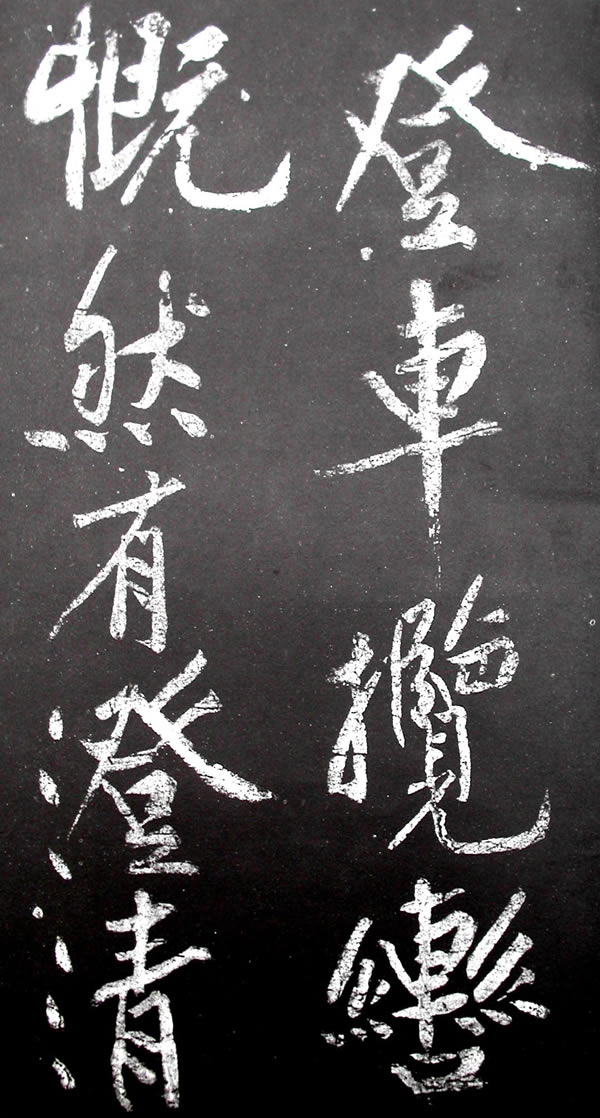 登車攬轡
慨然有澄清